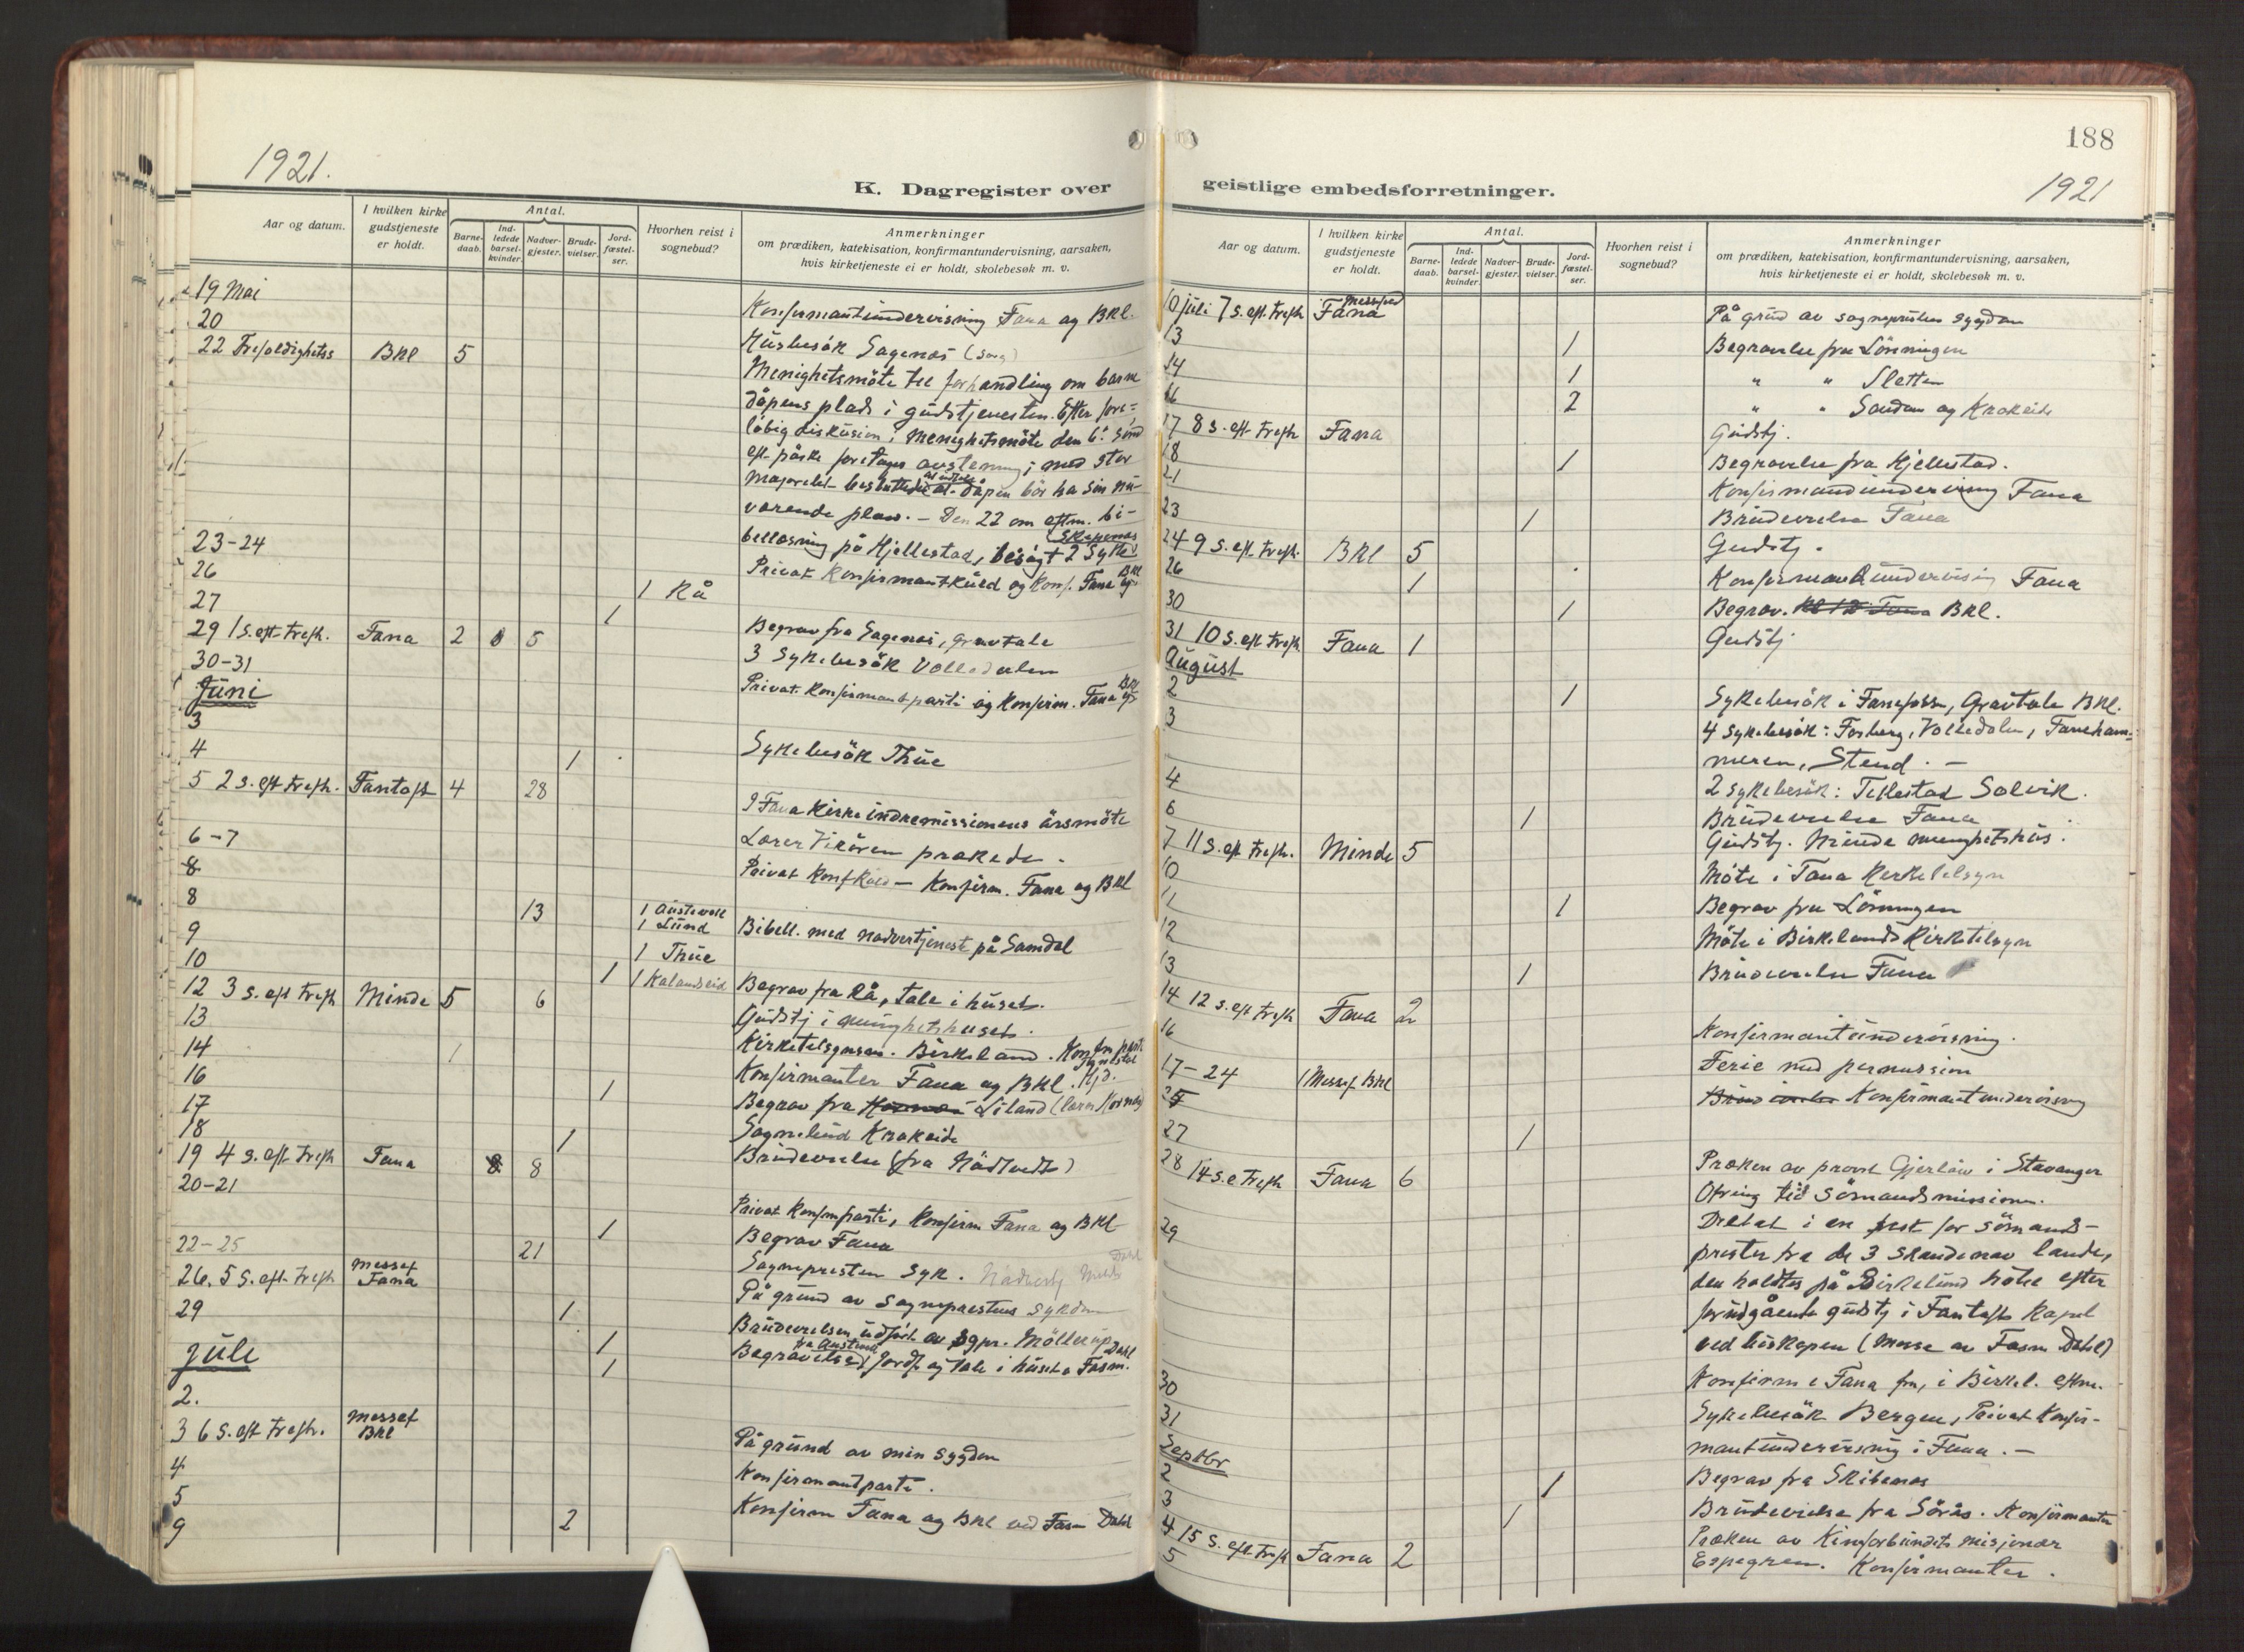 1921.
K. Dagregister over
Aar og datum.
I hvilken kirke gudstjeneste er holdt.
Antal.
Barne-daab.
Ind-ledede barsel-kvinder.
Nadver-gjester.
Brude-vielser.
Jord-fæstel-ser.
Hvorhen reist i sognebud?
Anmerkninger
om prædiken, katekisation, konfirmantundervisning, aarsaken,
hvis kirketjeneste ei er holdt, skolebesøk m. v.
19 Mai
20 Konfirmantundervisning Fana og BKl.
22 Trefoldighetss BKl 5 Husbesök Sagenes (sorg)
Menighetsmöte til forhandling om barne
dåpens plads i gudstjenesten. Efter fore=
löbig diskusion i menighetsmöte den 6te sönd
eft. påske foretages avstemning; med stor
Majoritet besluttedes at dåpen bör ha sin nu-
værende plass. – Den 22 om eftm. bi-
bellæsning på Hjellestad, besögt 2 Syke Skagenes
23-24 Privat Konfirmantkuld og Konf. Fana og BKl
26 1 Rå
27 1 Begrav fra Sagenes, gravtale
29 1 S. eft. Trefh. Fana 2 5 3 Sykebesök Volledalen
30-31 Privat Konfirmantparti og Konfirm. Fana og BKl
Juni
3 Sykebesök Thue
4 1
5 2 S. eft Trefh. Fantoft 4 28 I Fana Kirke indremissionens årsmöte
Lærer Vikören prækede.
6-7 Privat Konfkuld – Konfirm. Fana og BKl
8
8 13 1 Austevoll
1 Lund Bibell. med nadvertjeneste på Samdal
9 1 Thue
10 1 1 Kalandseid Begrav fra Rå, tale i huset.
12 3 S. eft Trefh Minde 5 6 Gudstj i menighetshuset.
13 Kirketilsynsm. Birkeland.
14 1 Konfirmanter Fana og BKl.
16 1 Begrav fra Liland
17 Sognebud Krokeide
18 1 Brudevielse (fra Nådtvedt)
19 4 S. eft Trefh Fana 8
20-21 Privat Konfmparti, Konfirm Fana og BKl
1 Begrav Fana
22-25 21 Sognepresten syk.
26. 5 S. eft Trefh Messef Fana På grund av Sogneprestens sykdom
29 1 Brudevielsen udfört av Sgpr. Möllerup
Juli 1 Begravelse fra Austevoll Jordf. og tale i huset Fasm. Dahl
2. 1
3 6 S. eft Trefh. Messef BKl På grund av min sygdom
4 Konfirmantparti.
5 Konfirm Fana og BKl ved Fasm Dahl
9 2
188
geistlige embedsforretninger.
1921
Aar og datum.
I hvilken kirke gudstjeneste er holdt.
Antal.
Barne-daab.
Ind-ledede barsel-kvinder.
Nadver-gjester.
Brude-vielser.
Jord-fæstel-ser.
Hvorhen reist i sognebud?
Anmerkninger
om prædiken, katekisation, konfirmantundervisning, aarsaken,
hvis kirketjeneste ei er holdt, skolebesøk m. v.
10 juli 7 S. eft. Trefh Messefald Fana På grund av sogneprestens sygdom
13 1 Begravelse fra Lönningen
14 1 " " Sletten
16 2 " " Sandven og Krokeide
17 8 S. eft Trefh Fana Gudstj.
18 1 Begravelse fra Hjellestad.
21 Konfirmandundervisning Fana
23 1 Brudevielse Fana
24 9 S. eft. Trefh. BKl 5 Gudstj.
26 1 Konfirmandundervisning Fana
30 1 Begrav. BKl.
31 10 S. eft Trefh Fana 1 Gudstj
August
2 1 Sykebesök i Fanefossen, Gravtale BKl.
3 4 Sykebesök: Forberg, Volledalen, Faneham=
meren, Stend. –
4 2 sykebesök: Tellestad Solvik.
6 1 Brudevielse Fana
7 11 S. eft Trefh. Minde 5 Gudstj. Minde menighetshus.
10 Möte i Fana Kirketilsyn
11 1 Begrav fra Lönningen
12 Möte i Birkelands Kirketilsyn
13 1 Brudevielse Fana
14 12 S. eft Trefh Fana 2
16 Konfirmantundervisning.
17-24 (Messef BKl Ferie med permission
25 Konfirmantundervisning
27 1
28 14 S. e Trefh Fana 6 Præken av provst Gjerlöw i Stavanger
Ofring til Sömandsmissionen.
29 Deltat i en fest for sömands-
prester fra de 3 skandinav lande,
den holdtes på Birkelund hotel efter
forudgående gudstj i Fantoft Kapel
ved biskopen (Messe av Fasm Dahl)
30 Konfirm i Fana fm, i Birkel. eftm.
31 Sykebesök Bergen, Privat Konfir-
mantundervisning i Fana. –
Septbr
2 1 Begrav fra Skibenes
3 1 Brudevielse fra Sörås. Konfirmanter
4 15 S. eft Trefh Fana 2 Præken av Kinaforbundets misjonær
5 Espegren. Konfirmanter.